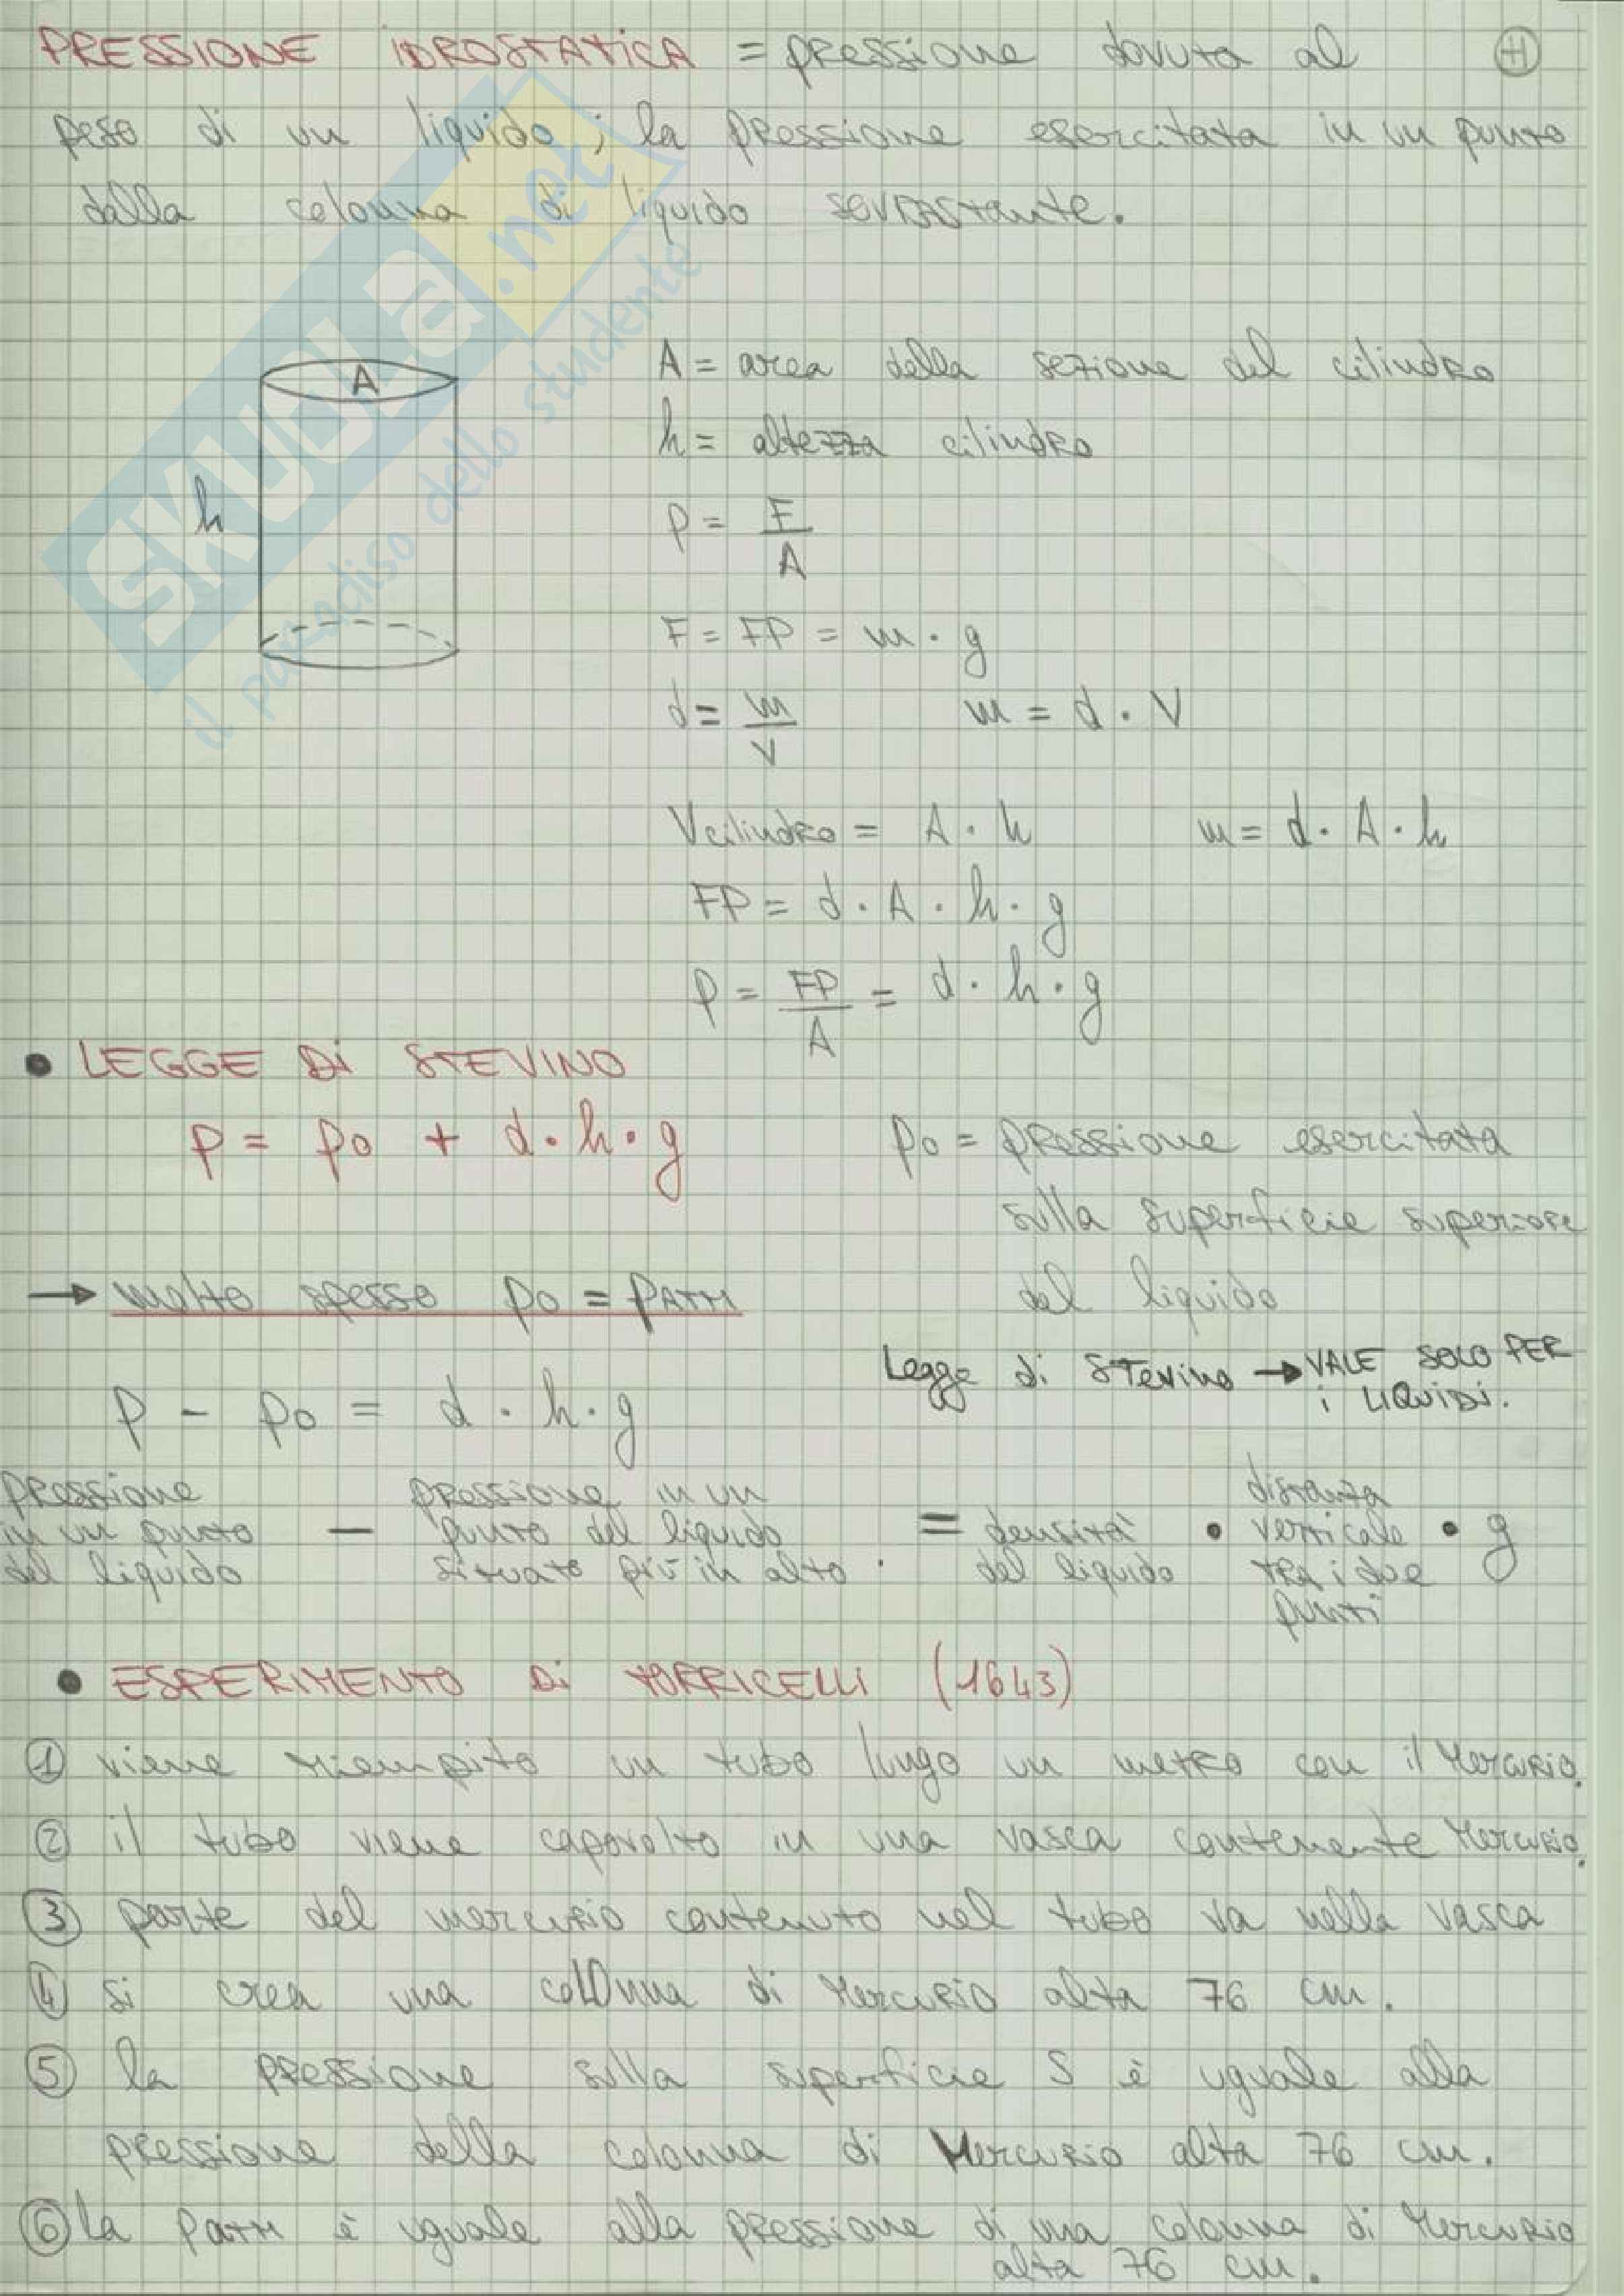 PRESSIONE IDROSTATICA = pressione dovuta al
peso di un liquido; la pressione esercitata in un punto
dalla colonna di liquido sovrastante.
SKUOLA.net
il paradiso dello studente
A
h
A = area della sezione del cilindro
h = altezza cilindro
p = F/A
F = FP = m · g
d = m/V m = d · V
Vcilindro = A · h m = d · A · h
FP = d · A · h · g
p = FP/A = d · h · g
• LEGGE Di STEVINO
p = p0 + d · h · g
p0 = pressione esercitata
sulla superficie superiore
del liquido
→ molto spesso p0 = PATM
Legge di Stevino → VALE SOLO PER
i LIQUIDI.
p - p0 = d · h · g
pressione
in un punto
del liquido
−
pressione in un
punto del liquido
situato più in alto
=
densità
del liquido
•
distanza
verticale
tra i due
punti
• g
• ESPERIMENTO Di TORRICELLI (1643)
① viene riempito un tubo lungo un metro con il Mercurio.
② il tubo viene capovolto in una vasca contenente Mercurio.
③ parte del mercurio contenuto nel tubo va nella vasca
④ si crea una colonna di Mercurio alta 76 cm.
⑤ la pressione sulla superficie S è uguale alla
pressione della colonna di Mercurio alta 76 cm.
⑥ la PATM è uguale alla pressione di una colonna di Mercurio
alta 76 cm.